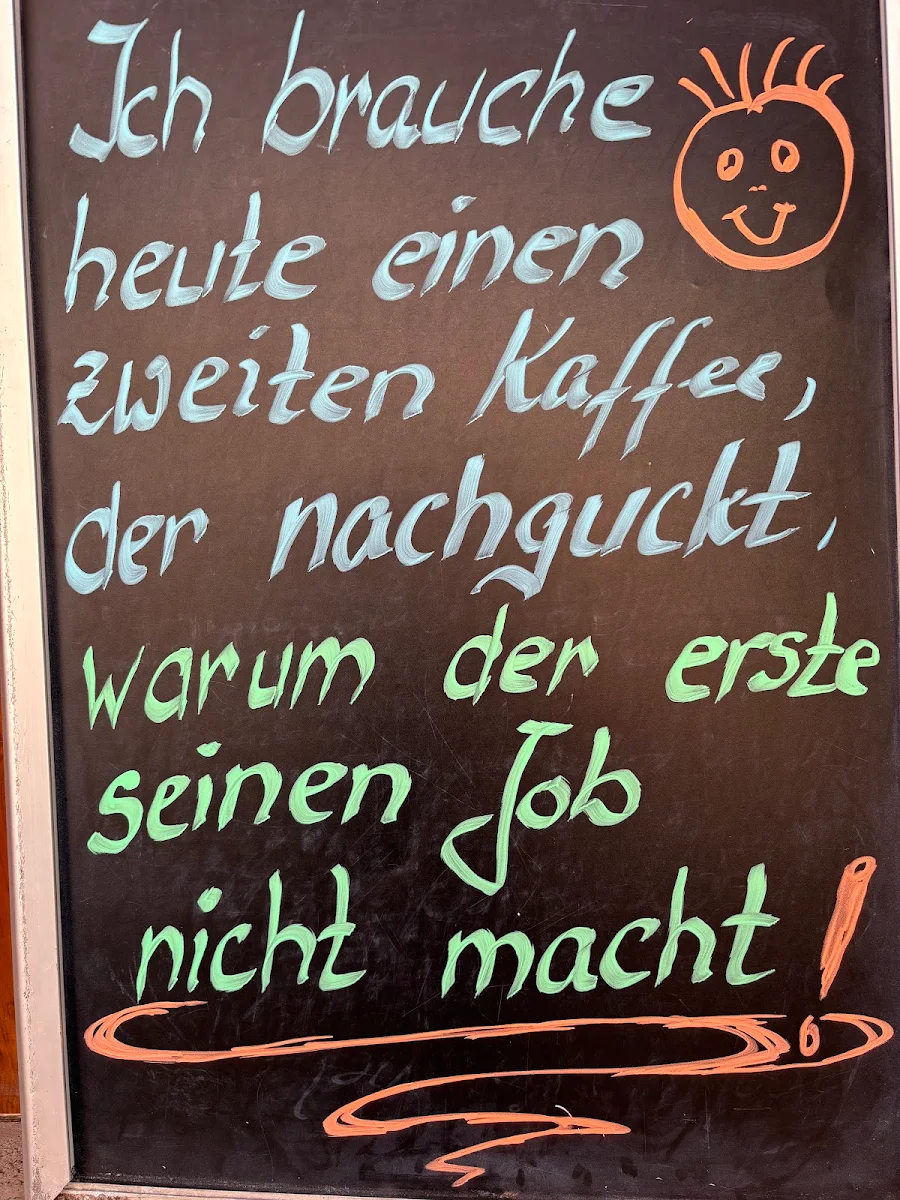 Ich brauche
heute einen
zweiten Kaffee,
der nachguckt,
warum der erste
seinen Job
nicht macht!